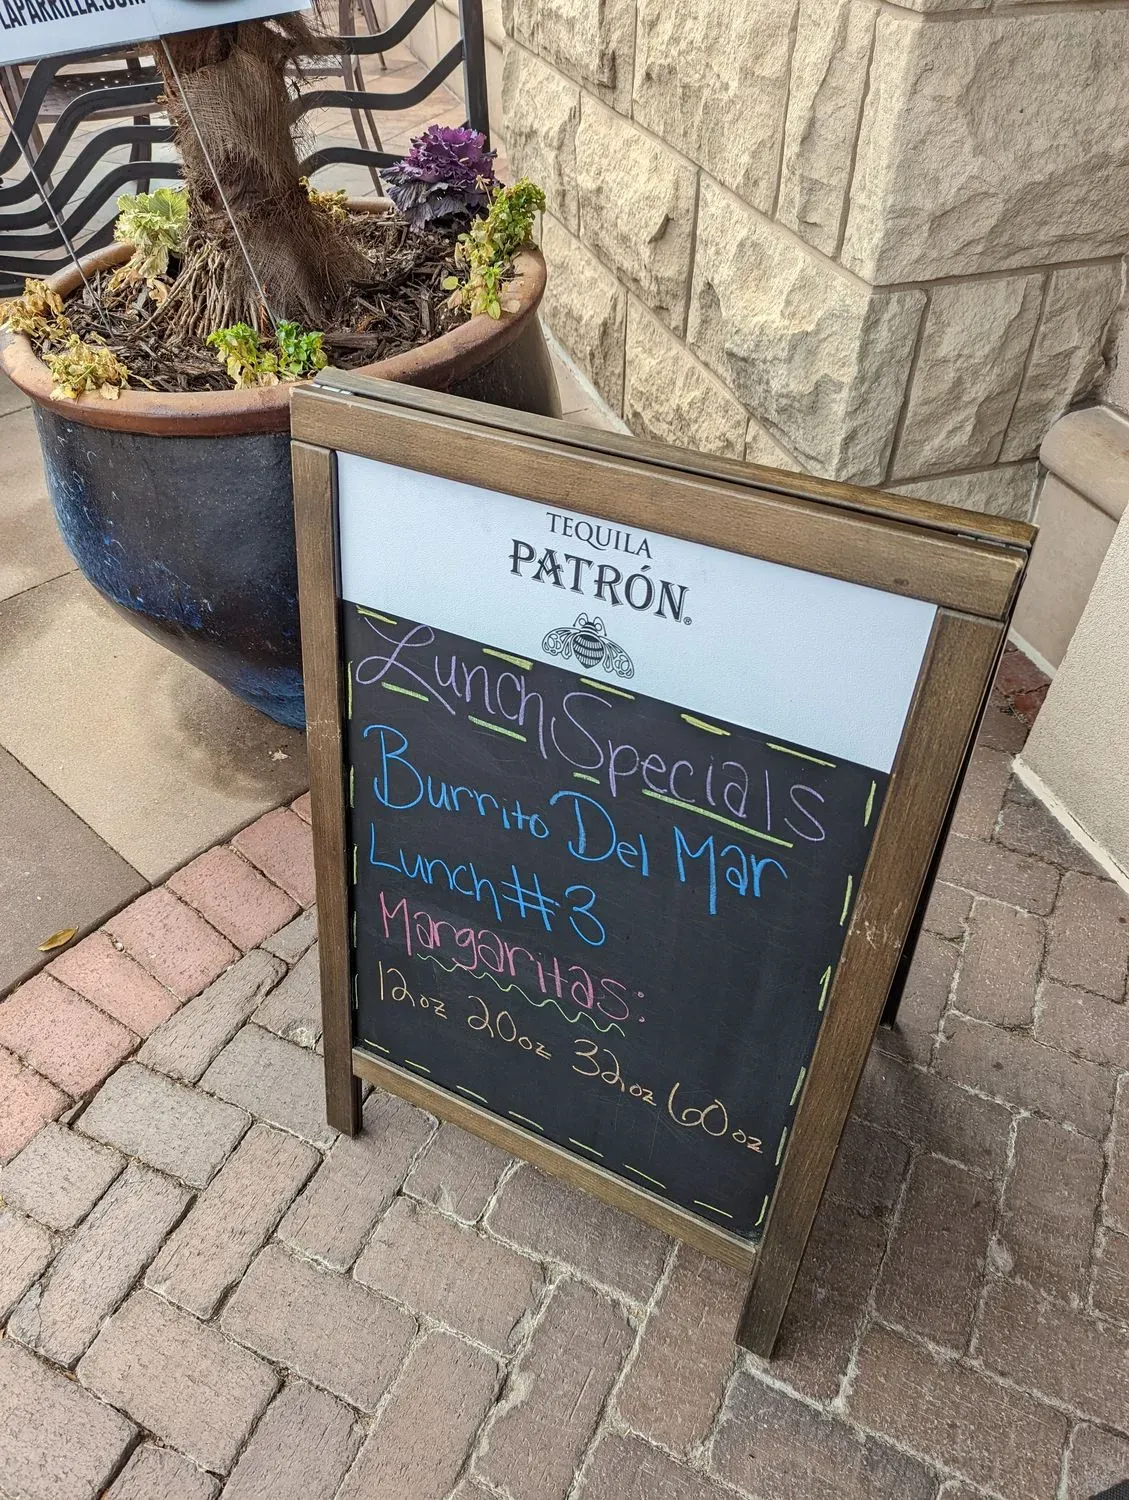 LAPARRILLA.COM
TEQUILA
PATRÓN®
Lunch Specials
Burrito Del Mar
Lunch #3
Margaritas:
12oz 20oz 32oz 60oz